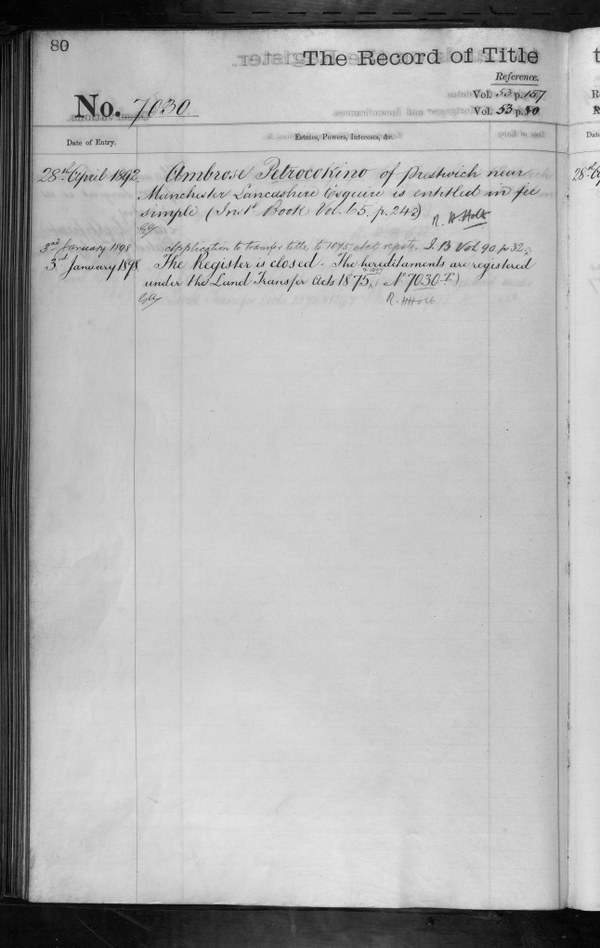 80
The Record of Title
Reference.
Vol. 53 p. 157
No. 7030
Vol. 53 p. 80
Date of Entry.
Estates, Powers, Interests, &c.
28th April 1892 Ambrose Petrocokino of Prestwich near
Manchester Lancashire Esquire is entitled in fee
simple (Inst. Book Vol. 65. p. 242)
R. H. Holt
3rd January 1898 Application to transfer title to 1875 I. B Vol 90. p 32.
3rd January 1898 The Register is closed. The hereditaments are registered
under the Land Transfer Acts 1875, No 7030 T)
R. H. Holt